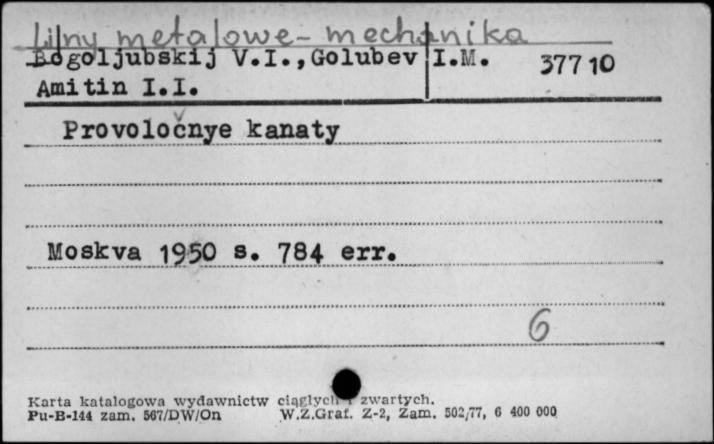 Liny metalowe - mechanika
Bogoljubskij V.I., Golubev I.M. 37710
Amitin I.I.
Provoločnye kanaty
Moskva 1950 s. 784 err.
6
Karta katalogowa wydawnictw ciągłych i zwartych.
Pu-B-144 zam. 567/DW/On W.Z.Graf. Z-2, Zam. 502/77, 6 400 000